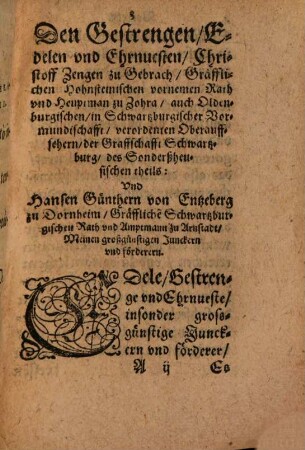 Den Gestrengen/E-
delen vnd Ehrnuesten/Chri-
stoff Zengen zu Gebrach/Gräffli-
chen Hohnsteinischen vornemen Rath
vnd Heuptman zu Lohra/auch Olden-
burgischen/in Schwartzburgischer Vor-
mundtschafft/verordenten Oberauff-
sehern/der Graffschafft Schwartz-
burg/des Sonderßheu-
sischen theils:
Vnd
Hansen Günthern von Entzeberg
zu Dornheim/Gräffliche͂ Schwartzbur-
gischen Rath vnd Amptmann zu Arnstadt/
Meinen großgünstigen Junckern
vnd förderern.
EDele/Gestren-
ge vnd Ehrnueste/
insonder gros-
günstige Junck-
ern vnd förderer/
A ij Es